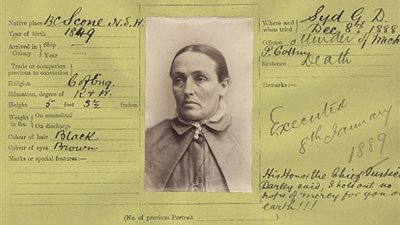 Native place Scone N.S.W.
Year of birth 1849
Arrived in Colony } Ship
Trade or occupation previous to conviction }
Religion C of Eng.
Education, degree of R + W.
Height 5 feet 3½ inches.
Weight in lbs. { On committal
On discharge
Colour of hair Black
Colour of eyes Brown
Marks or special features:—
(No. of previous Portrait )
Where and when tried } Syd G. D.
Dec 8th 1888
Offence Murder of Mich
P. Collins
Sentence Death
Remarks:—
Executed
8th January
1889
His Honor the Chief Justice
Darley said, I hold out no
hope of mercy for you on
earth!!!